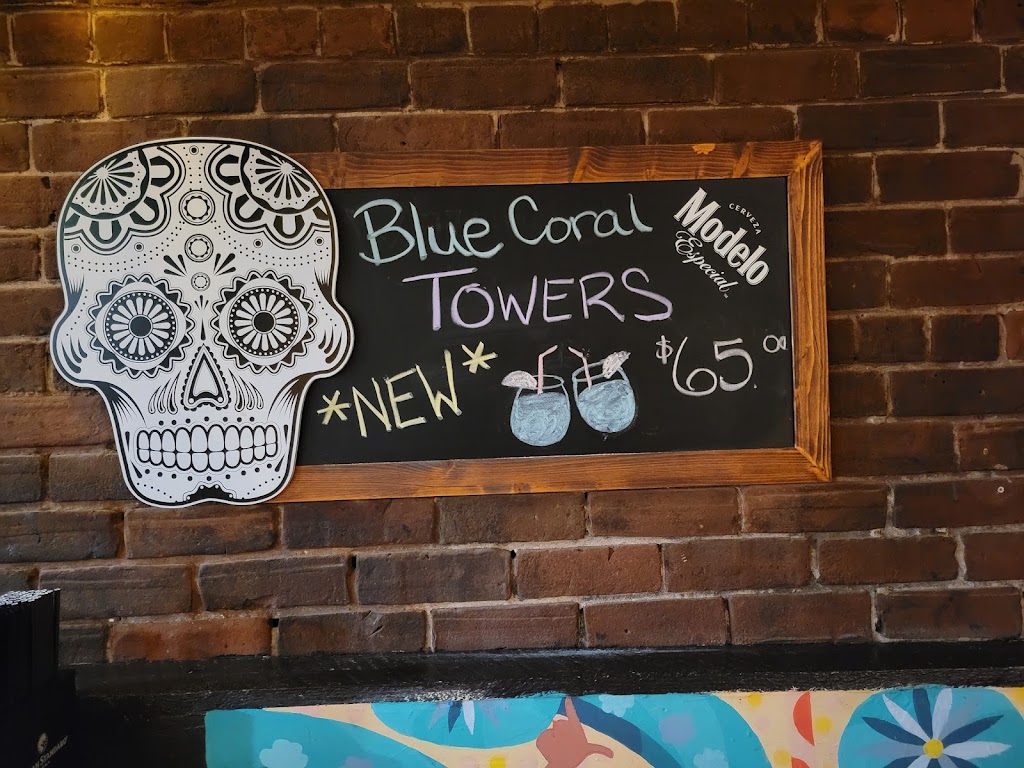 Blue Coral
TOWERS
*NEW*
$65.00
CERVEZA
Modelo
Especial
STANDARD